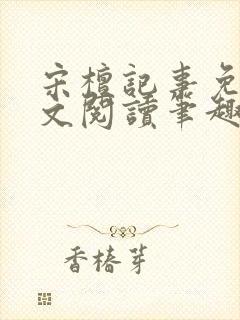 宋檀記事免
文閱讀筆趣
香椿芽